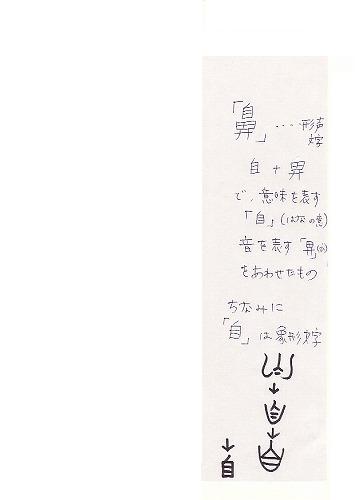 「鼻」…形声
文字
自+畀
で、意味を表す
「自」(はなの意)
音を表す「畀(ひ)」
をあわせたもの
ちなみに
「自」は象形文字
自